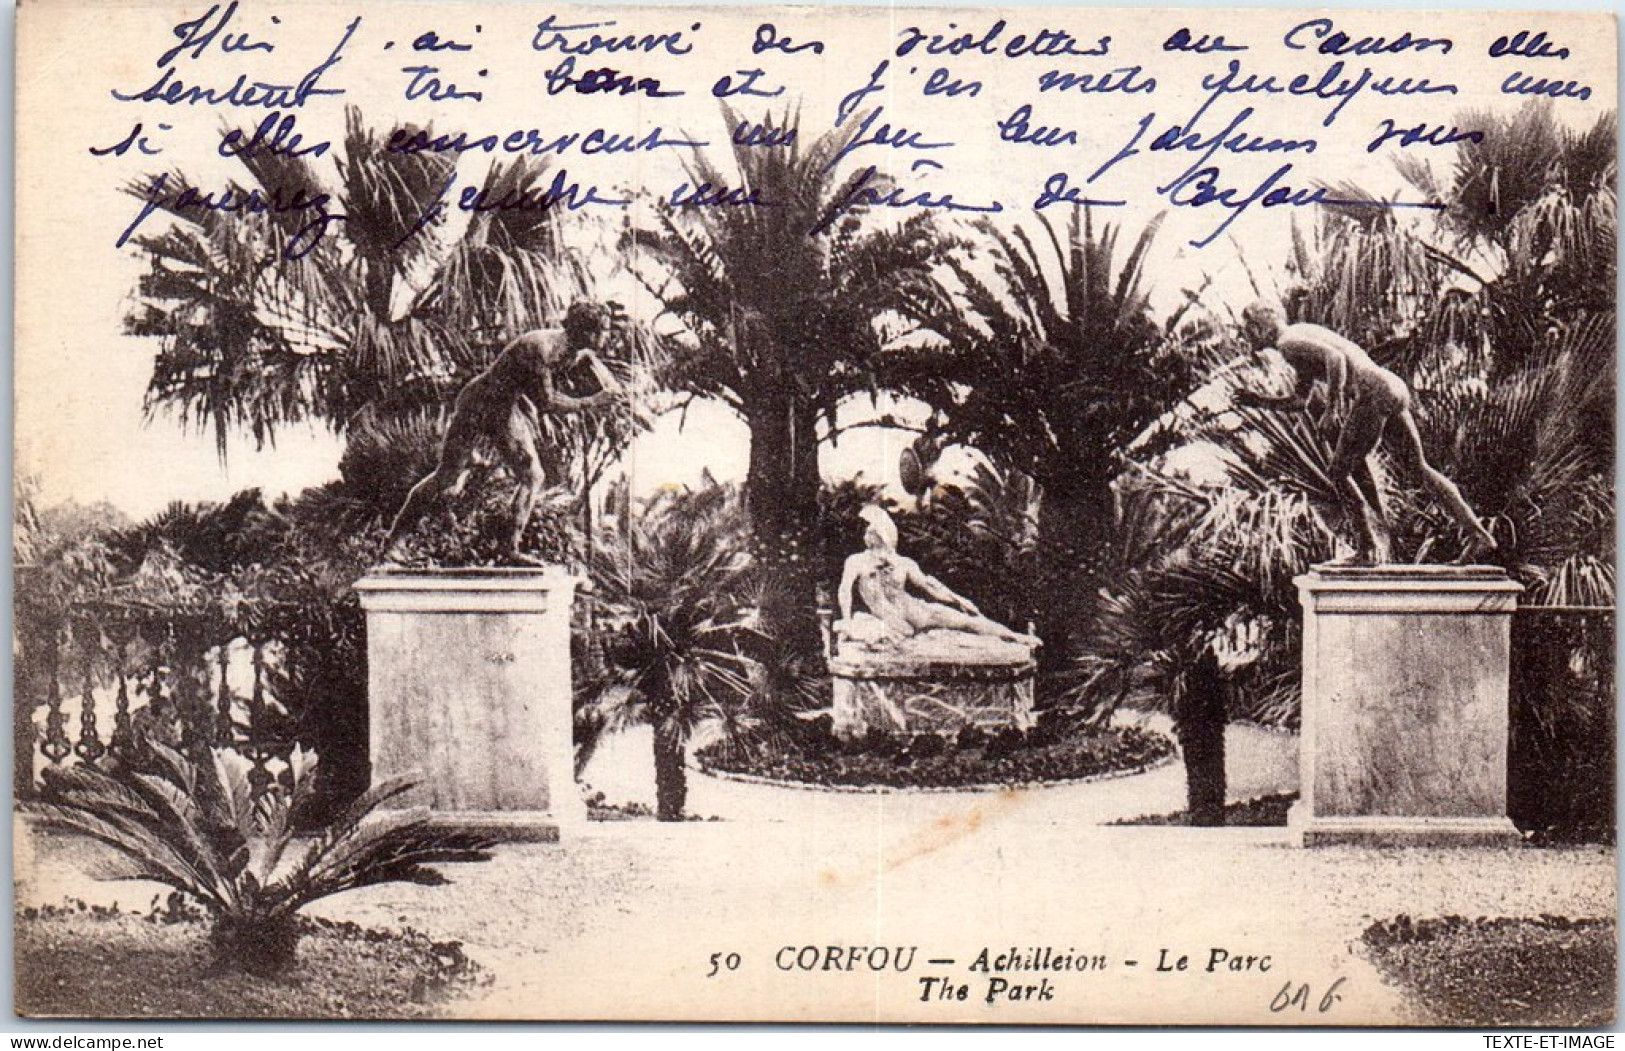 Hier j'ai trouvé des violettes au Canon elles
sentent très bon et j'en mets quelques unes
si elles conservent un peu leur parfum vous
pourrez prendre une prise de Corfou
50 CORFOU — Achilleion - Le Parc
The Park
616
TEXTE-ET-IMAGE